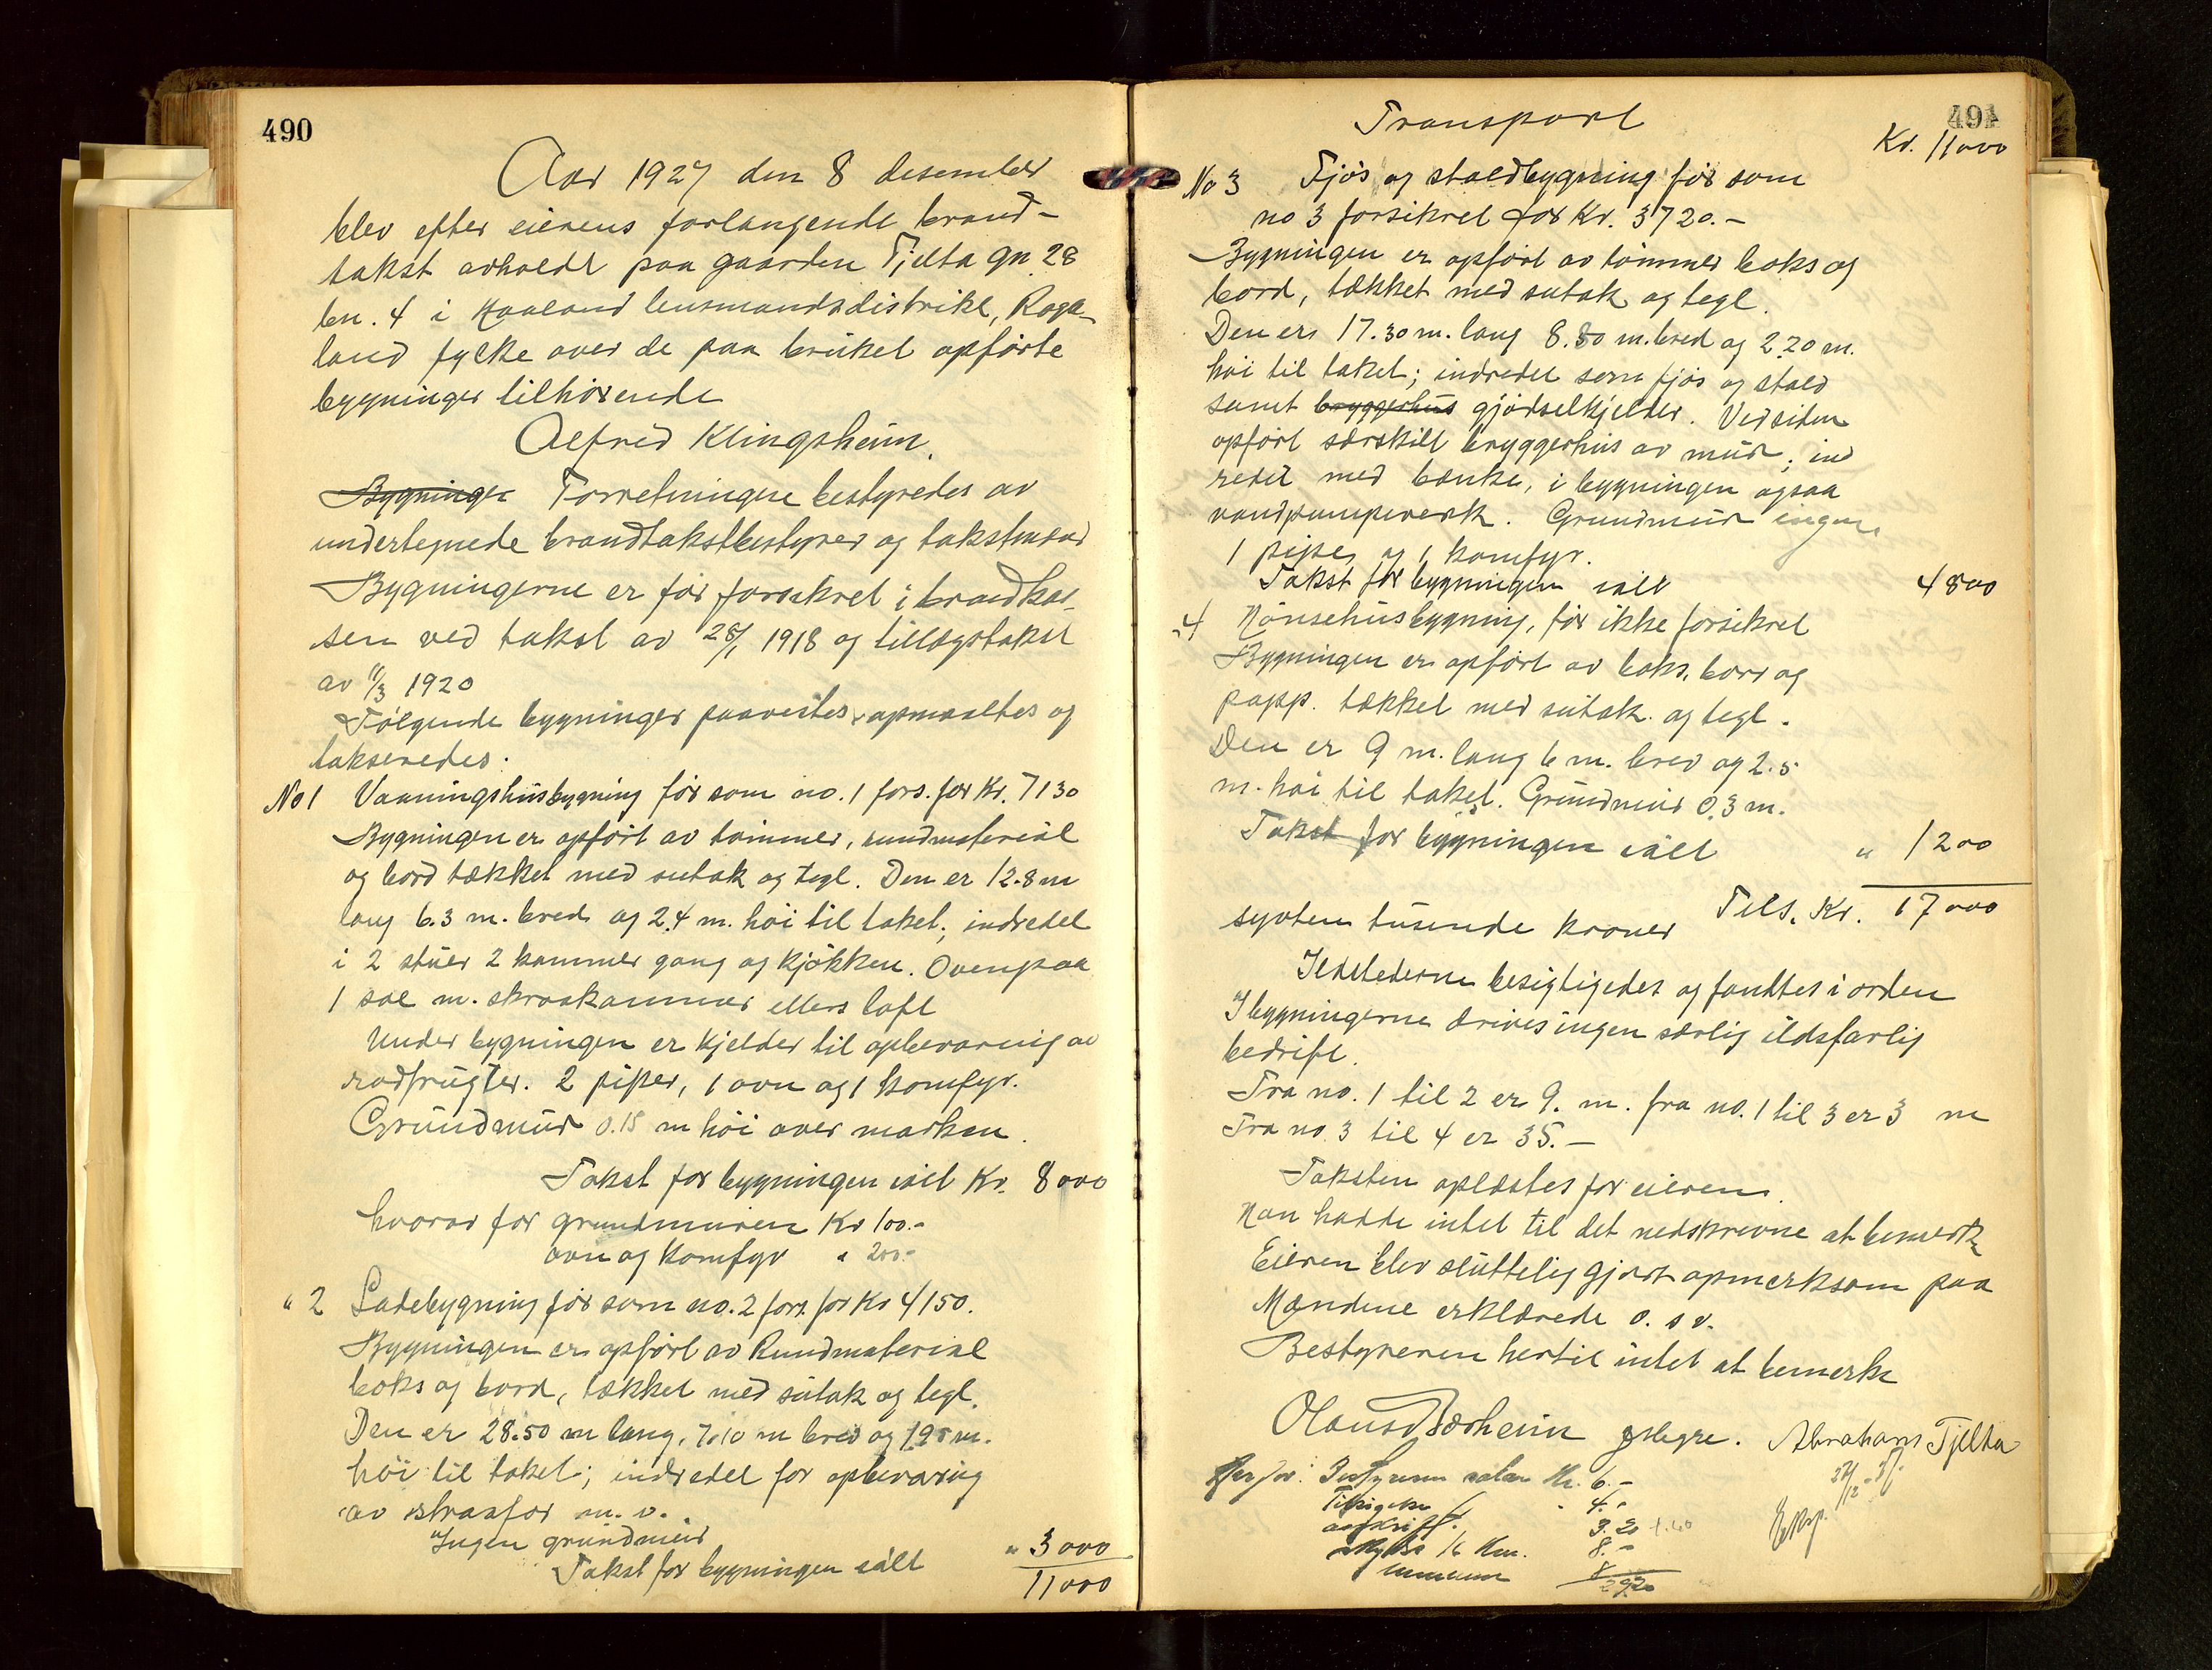 490
Aar 1927 den 8 desember
blev efter eierens forlangende brand-
takst avholdt paa gaarden Tjelta gn 28
bn. 4 i Haaland lensmandsdistrikt, Roga-
land fylke over de paa bruket opførte
bygninger tilhørende
Alfred Klingsheim.
Bygninger Forretningen bestyredes av
undertegnede brandtakstbestyrer og takstmænd
Bygningerne er før forsikret i brandkas-
sen ved takst av 28/1 1918 og tillægstakst
av 11/3 1920
Følgende bygninger paavistes, opmaaltes og
takseredes:
No 1 Vaaningshusbygning før som no. 1 fors. for Kr. 7130
Bygningen er opført av tømmer, rundmaterial
og bord tækket med sutak og tegl. Den er 12.8 m
lang 6.3 m. bred og 2.4 m. høi til taket; indredet
i 2 stuer 2 kammer gang og kjøkken. Ovenpaa
1 sal m. skraakammer ellers loft
Under bygningen er kjelder til opbevaring av
rodfrugter. 2 piper, 1 ovn og 1 komfyr.
Grundmur 0.15 m høi over marken.
Takst for bygningen ialt Kr. 8000
hvorav for grundmuren Kr 100.-
ovn og Komfyr " 200.-
" 2 Ladebygning før som no. 2 fors. for Kr 4150.
Bygningen er opført av Rundmaterial
boks og bord, tækket med sutak og tegl.
Den er 28.50 m lang, 7.10 m bred og 1.95 m.
høi til taket; indredet for opbevaring
av straafor m. v.
Ingen grundmur
Takst for bygningen ialt " 3000
11000
Transport
491
Kr. 11000
No 3 Fjøs og staldbygning før som
no 3 forsikret for Kr. 3720.-
Bygningen er opført av tømmer boks og
bord, tækket med sutak og tegl.
Den er 17.30 m. lang 8.80 m. bred og 2.20 m.
høi til taket; indredet som fjøs og stald
samt bryggerhus gjødselkjelder. Ved siden
opført særskilt bryggerhus av mur; ind
redet med bænke, i bygningen ogsaa
vandpumpeverk. Grundmur ingen
1 pipe og 1 komfyr.
Takst for bygningen ialt 4800
" 4 Hønsehusbygning, før ikke forsikret
Bygningen er opført av boks, bord og
papp. tækket med sutak og tegl.
Den er 9 m. lang 6 m. bred og 2.5
m. høi til taket. Grundmur 0.3 m.
Takst for bygningen ialt " 1200
Tils. Kr. 17000
sytten tusende kroner
Ildstederne besigtigedes og fandtes i orden
I bygningerne drives ingen særlig ildsfarlig
bedrift.
Fra no. 1 til 2 er 9. m. fra no. 1 til 3 er 3 m
Fra no. 3 til 4 er 35.-
Taksten oplæstes for eieren.
Han hadde intet til det nedskrevne at bemerke
Eieren blev sluttelig gjort opmerksom paa
Mændene erklærede o. s v.
Bestyreren hertil intet at bemerke
Abraham Tjelta
Bestyreren Kr. 6.-
Tilsigelse " 4.-
avskrift. 3.20
skyds 16 Km. 8.-
8
29.20
Eksp.